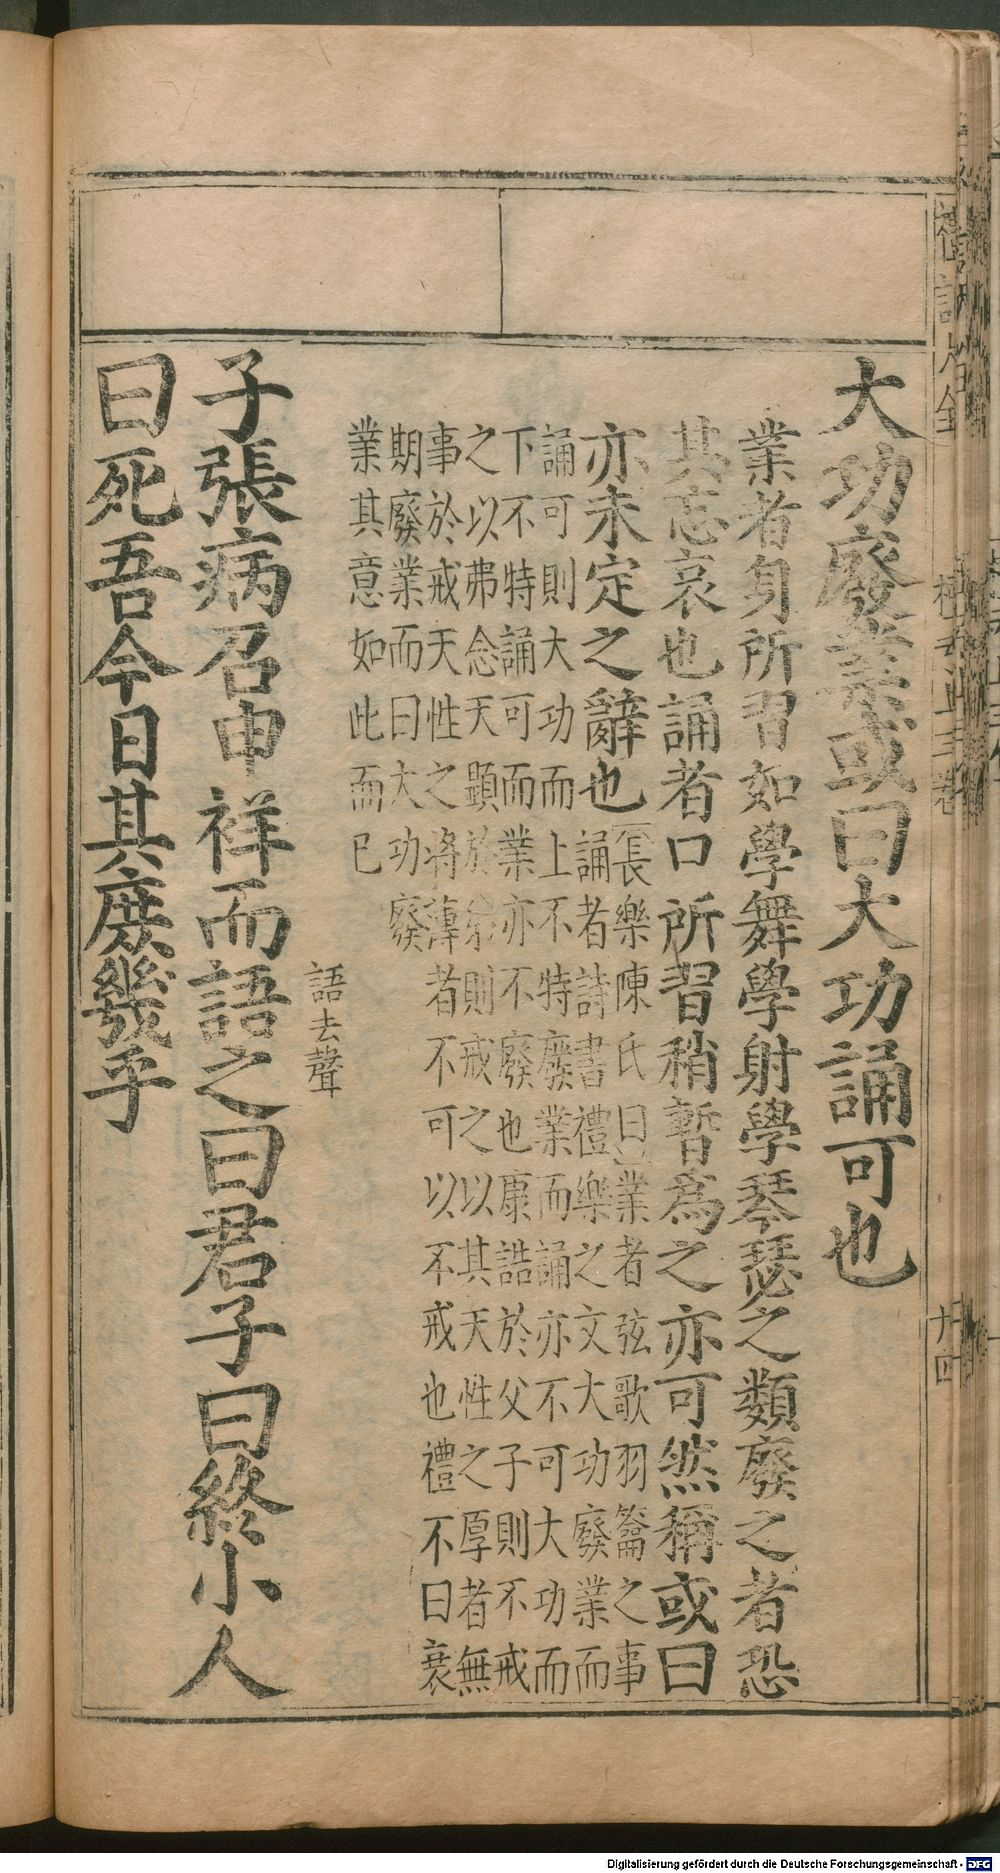 大功廢業或曰大功誦可也
業者身所習如學舞學射學琴瑟之類廢之者恐
其忘哀也誦者口所習稍暫爲之亦可然稱或曰
亦未定之辭也
長樂陳氏曰業者弦歌羽籥之事
誦者詩書禮樂之文大功廢業而
誦可則大功而上不特廢業而誦亦不可大功而
下不特誦可而業亦不廢也康誥於父子則不戒
之以弗念天顯於弟則戒之以其天性之厚者無
事於戒天性之將薄者不可以不戒也禮不曰衰
期廢業而曰大功廢
業其意如此而已
語去聲
子張病召申祥而語之曰君子曰終小人
曰死吾今日其庶幾乎
Digitalisierung gefördert durch die Deutsche Forschungsgemeinschaft - DFG